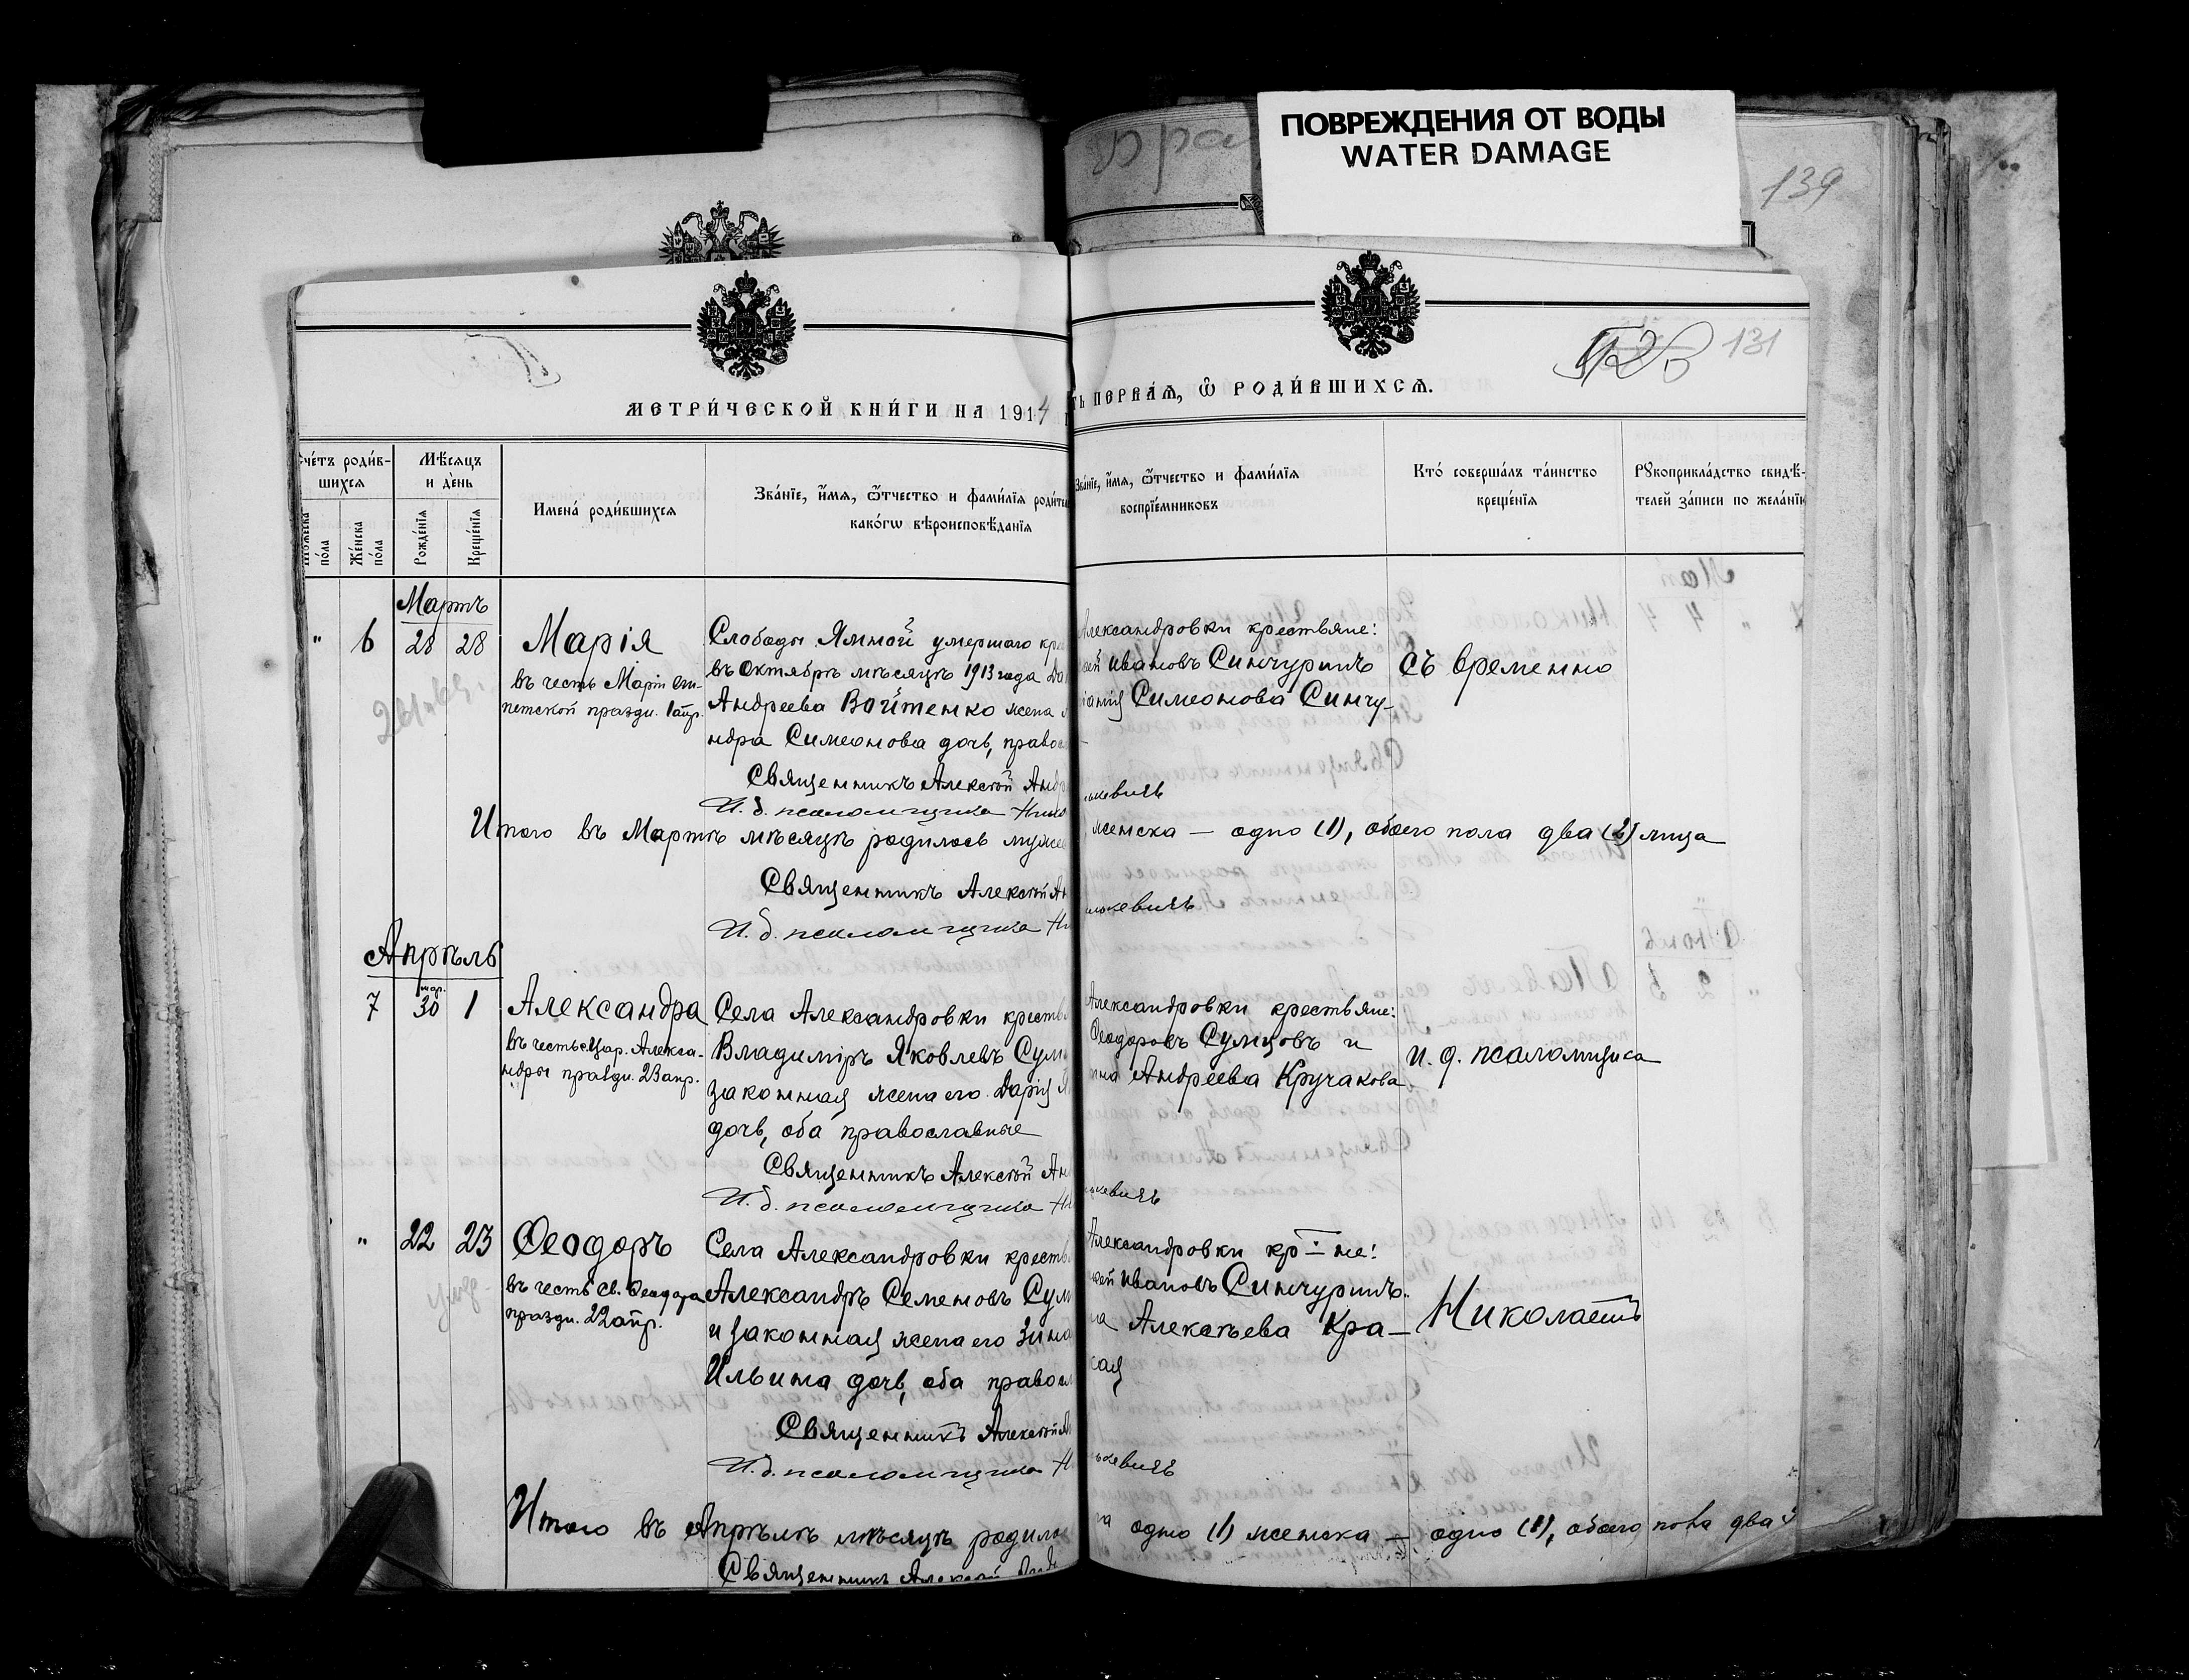 ПОВРЕЖДЕНИЯ ОТ ВОДЫ
WATER DAMAGE
139
131
МЕТРИ́ЧЕСКОЙ КНИ́ГИ НА 1914
ПЕРВАѦ, Ѿ РОДИ́ВШИХСѦ.
счéтъ роди́в-
шихсѧ
Мѣ́сѧцъ
и дéнь
пóла
Жéнска
пóла
Рождéнїѧ
Крещéнїѧ
Именá роди́вшихсѧ
Звáнїе, и́мѧ, ѻ҆́тчество и фами́лїѧ
какóгѡ вѣроисповѣ́данїѧ
Звáнїе, и́мѧ, ѻ҆́тчество и фами́лїѧ
воспрїéмниковъ
Ктó совершáлъ тáинство
крещéнїѧ
Рꙋкоприклáдство свидѣ́-
телей зáписи по желáнїю
Мартъ
" 6 28 28
Марія
въ честь Маріи еги-
петской праздн. 1 апр.
Слободы Ямной умершаго
въ Октябрѣ мѣсяцѣ 1913 года
Андреева Войтенко жена
ндра Симеонова дочь,
Священникъ Алексѣй
И. д. псаломщика
Александровки крестьяне:
Ивановъ Синчуринъ
Симеонова Синчу-
кевичъ
съ временно
Итого въ Мартѣ мѣсяцѣ родилось
женска — одно (1), обоего пола два (2) лица
Священникъ Алексѣй
И. д. псаломщика
кевичъ
Апрѣль
7 мар. 30 1
Александра
въ честь цар. Алекса-
ндры праздн. 23 апр.
Села Александровки
Владиміръ Яковлевъ
законная жена его Дарія
дочь, оба православные
Священникъ Алексѣй
И. д. псаломщика
Александровки крестьяне:
Ѳеодоровъ Сумцовъ и
Андреева Кручакова
кевичъ
и. д. псаломщика
" 22 23
умер.
Ѳеодоръ
въ честь св. Ѳеодора
праздн. 22 апр.
Села Александровки
Александръ Семеновъ
и законная жена его
Ильина дочь, оба
Священникъ Алексѣй
И. д. псаломщика
Александровки кр-не:
Ивановъ Синчуринъ
Алексѣева Кра-
кевичъ
Николаемъ
Итого въ Апрѣлѣ мѣсяцѣ
одно (1) женска — одно (1), обоего пола два
Священникъ Алексѣй